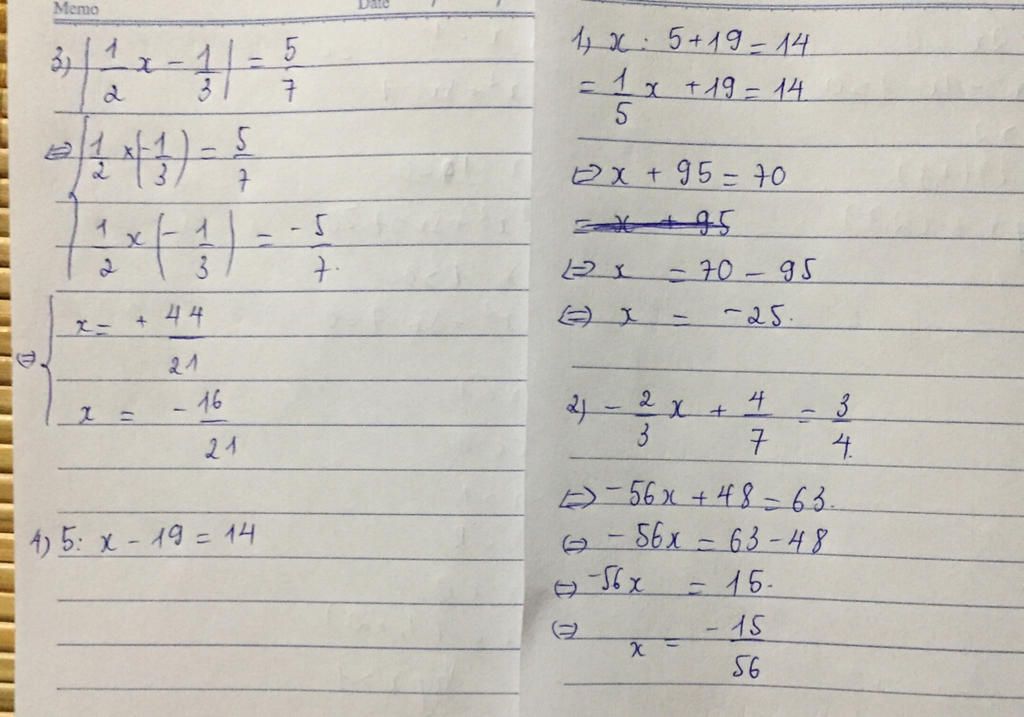 Memo
Date
3) |1/2 x - 1/3| = 5/7
⇔ [1/2 x (-1/3) = 5/7
[1/2 x (-1/3) = -5/7.
⇔ { x = + 44/21
x = - 16/21
4) 5: x - 19 = 14
1) x : 5 + 19 = 14
= 1/5 x + 19 = 14
⇔ x + 95 = 70
= x + 95
⇔ x = 70 - 95
⇔ x = -25.
2) - 2/3 x + 4/7 = 3/4.
⇔ -56x + 48 = 63.
⇔ -56x = 63 - 48
⇔ -56x = 15.
⇔ x = -15/56